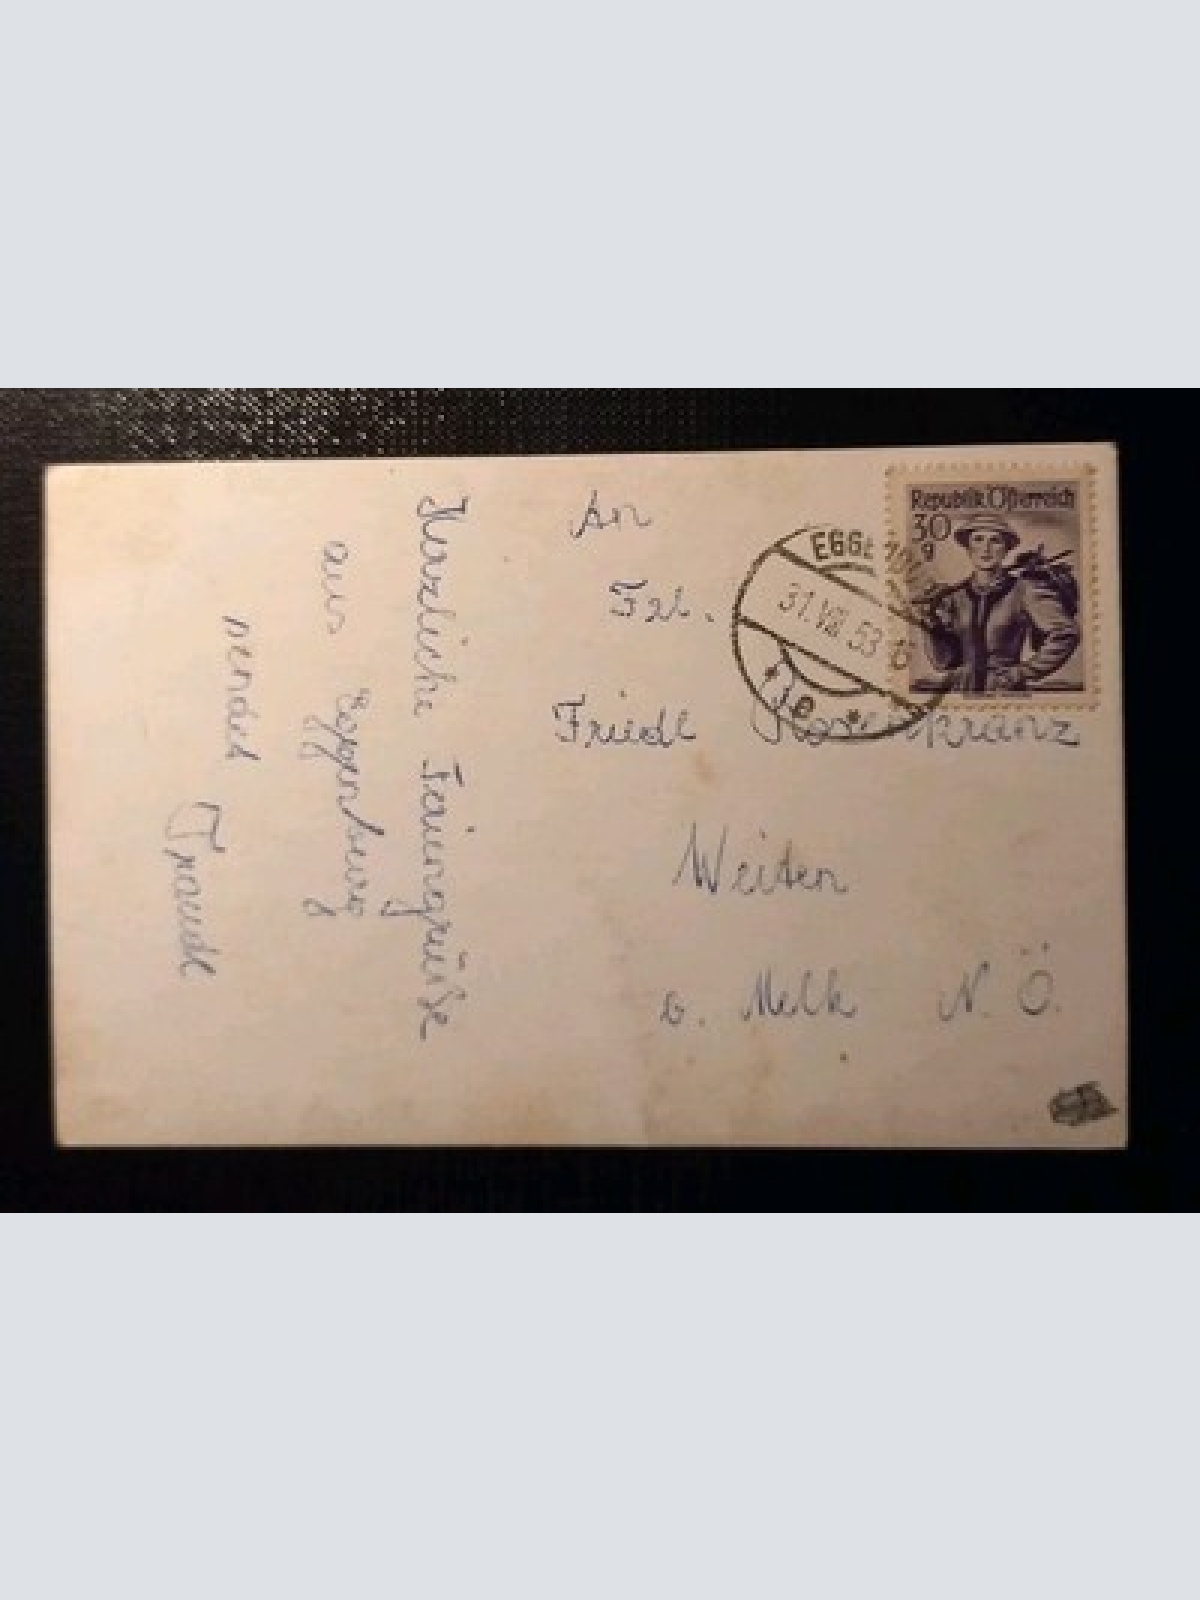 Herzliche Feriengrüße
aus Eggenburg
sendet
Traudl
An
Frl.
Friedl Rosenkranz
Weiten
b. Melk N. Ö.
Republik Österreich
30
g
31.VIII 53
* e *